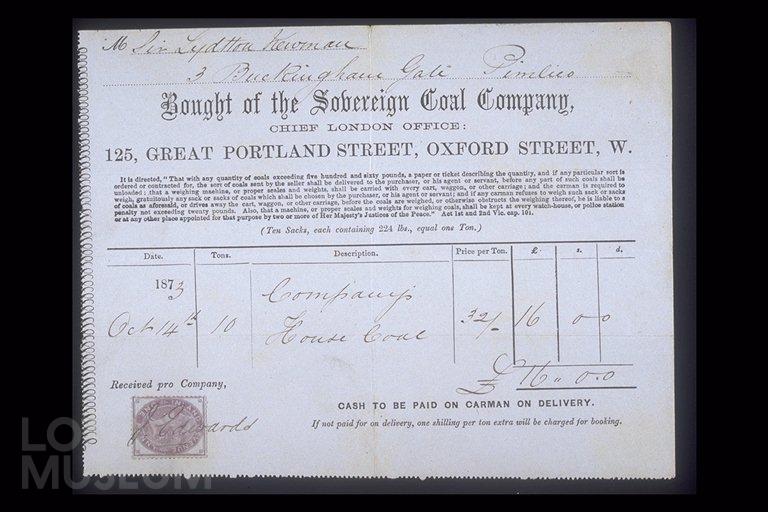 M Sir Lydston Newman
3 Buckingham Gate Pimlico
Bought of the Sovereign Coal Company,
CHIEF LONDON OFFICE:
125, GREAT PORTLAND STREET, OXFORD STREET, W.
It is directed, "That with any quantity of coals exceeding five hundred and sixty pounds, a paper or ticket describing the quantity, and if any particular sort is
ordered or contracted for, the sort of coals sent by the seller shall be delivered to the purchaser, or his agent or servant, before any part of such coals shall be
unloaded; that a weighing machine, or proper scales and weights, shall be carried with every cart, waggon, or other carriage; and the carman is required to
weigh, gratuitously any sack or sacks of coals which shall be chosen by the purchaser, or his agent or servant; and if any carman refuses to weigh such sack or sacks
of coals as aforesaid, or drives away the cart, waggon, or other carriage, before the coals are weighed, or otherwise obstructs the weighing thereof, he is liable to a
penalty not exceeding twenty pounds. Also, that a machine, or proper scales and weights for weighing coal, shall be kept at every watch-house, or police station
or at any other place appointed for that purpose by two or more of Her Majesty's Justices of the Peace." Act 1st and 2nd Vic. cap. 101.
(Ten Sacks, each containing 224 lbs., equal one Ton.)
Date. Tons. Description. Price per Ton. £. s. d.
1873 Company's
Oct 14th 10 House Coal 32/- 16 0 0
£16 " 0.0
Received pro Company,
CASH TO BE PAID ON CARMAN ON DELIVERY.
Edwards
If not paid for on delivery, one shilling per ton extra will be charged for booking.
LO
MUSEUM